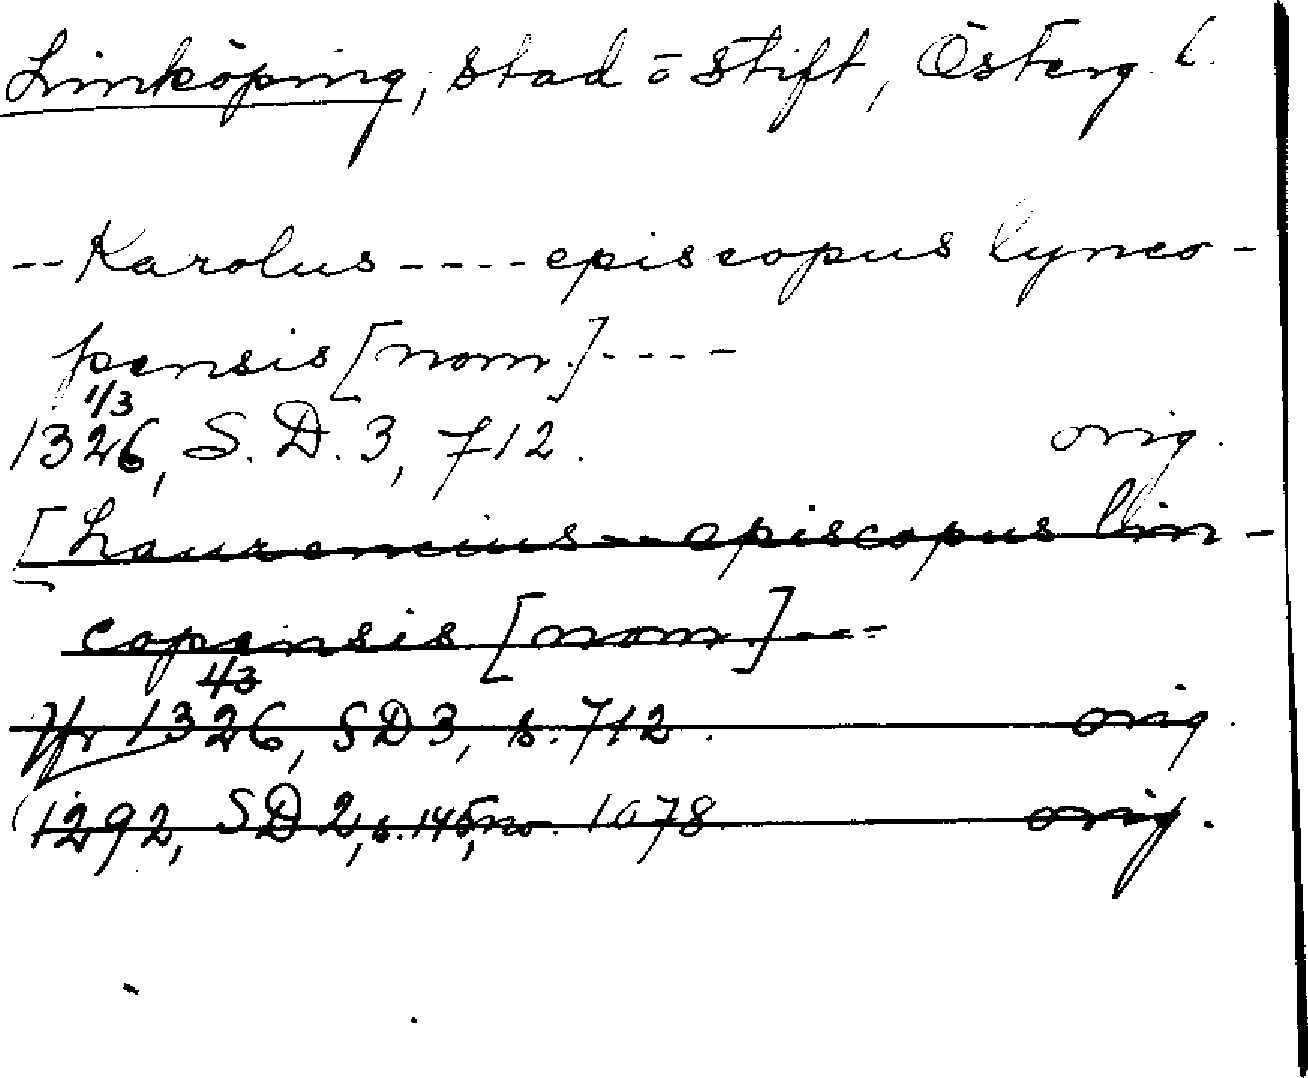 Linköping, stad o stift, Österg. l.
-- Karolus ---- episcopus lynco-
pensis [nom.] ----
1/3
1326, S.D.3, 712. orig.
[Laurencius -- episcopus lin-
copensis [nom.] ---
1/3
Jfr 1326, SD3, s. 712. orig.
(1292, SD2, s. 145, no. 1078 orig.